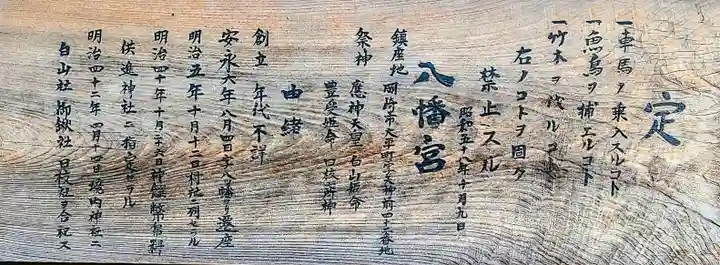 定
一車馬ヲ乗入スルコト
一魚鳥ヲ捕エルコト
一竹木ヲ伐ルコト
右ノコトヲ固ク
禁止スル
昭和五十八年十月九日
八幡宮
鎮座地 岡崎市大平町字天神前四十三番地
祭神 應神天皇 白山姫命
豊受姫命 日枝大神
由緒
創立 年代不詳
安永六年八月四日字八幡ヨリ遷座
明治五年十月十二日村社ニ列セラル
明治四十年十月二十六日神饌幣帛料
供進神社ニ指定セラル
明治四十二年四月十四日境内神社ニ
白山社 御鍬社 日枝社ヲ合祀ス